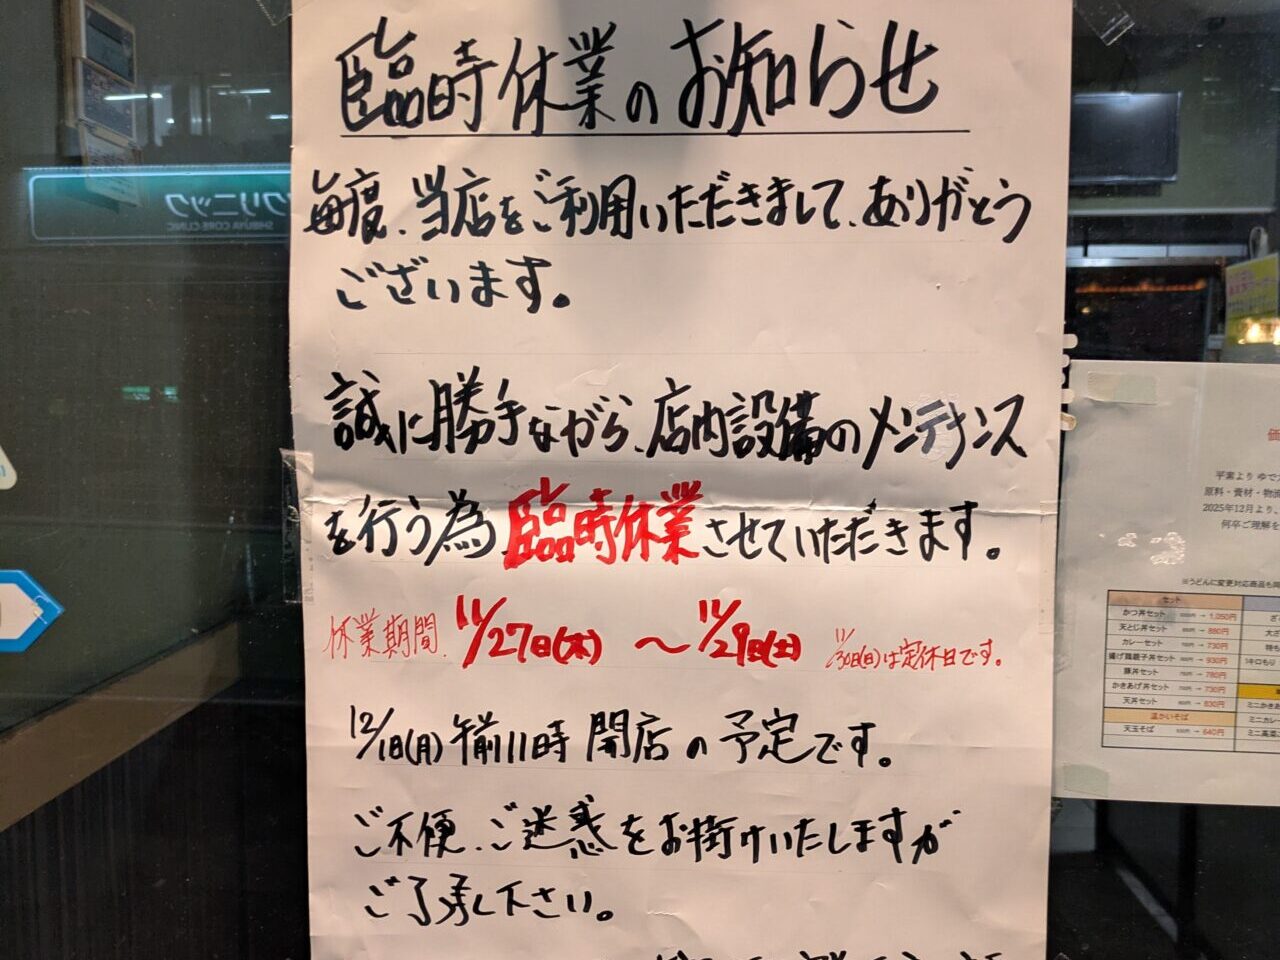 臨時休業のお知らせ
毎度、当店をご利用いただきまして、ありがとう
ございます。
誠に勝手ながら、店内設備のメンテナンス
を行う為、臨時休業させていただきます。
休業期間 11/27日(木) 〜 11/29日(土) 11/30日(日)は定休日です。
12/1日(月) 午前11時 開店の予定です。
ご不便、ご迷惑をお掛けいたしますが
ご了承し下さい。
クリニック
SHIBUYA CORE CLINIC
平素より ゆで
原料・資材・物
2025年12月より、
何卒ご理解を
※うどんに変更対応商品も同
セット
かつ丼セット → 1,050円
天とじ丼セット → 880円
カレーセット → 730円
揚げ鶏親子丼セット → 930円
豚丼セット → 780円
かきあげ丼セット → 730円
天丼セット → 830円
温かいそば
天玉そば → 640円